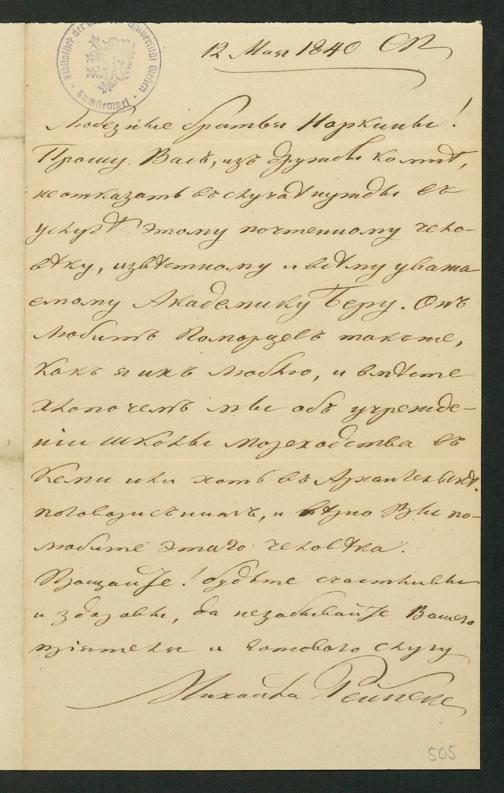 Bibliothek der Universität Giessen
12 Мая 1840 СП
Любезные братья Наркины!
Прошу Васъ, изъ дружбы ко мнѣ,
не отказать въ случаѣ нужды въ
услугѣ этому почтенному чело-
вѣку, извѣстному и всѣму уважа
емому Академику Беру. Онъ
любитъ Поморцевъ также,
какъ я ихъ люблю, и вмѣсте
хлопочемъ мы объ учрежде-
ніи школы мореходства въ
Кеми или хоть въ Архангельскѣ.
поговорите съ нимъ, и вѣрно Вы по-
любите этаго человѣка.
Прощайте! будьте счастливы
и здоровы, да незабывайте Вашего
пріятеля и готоваго слугу
Михайла Рейнеке
505